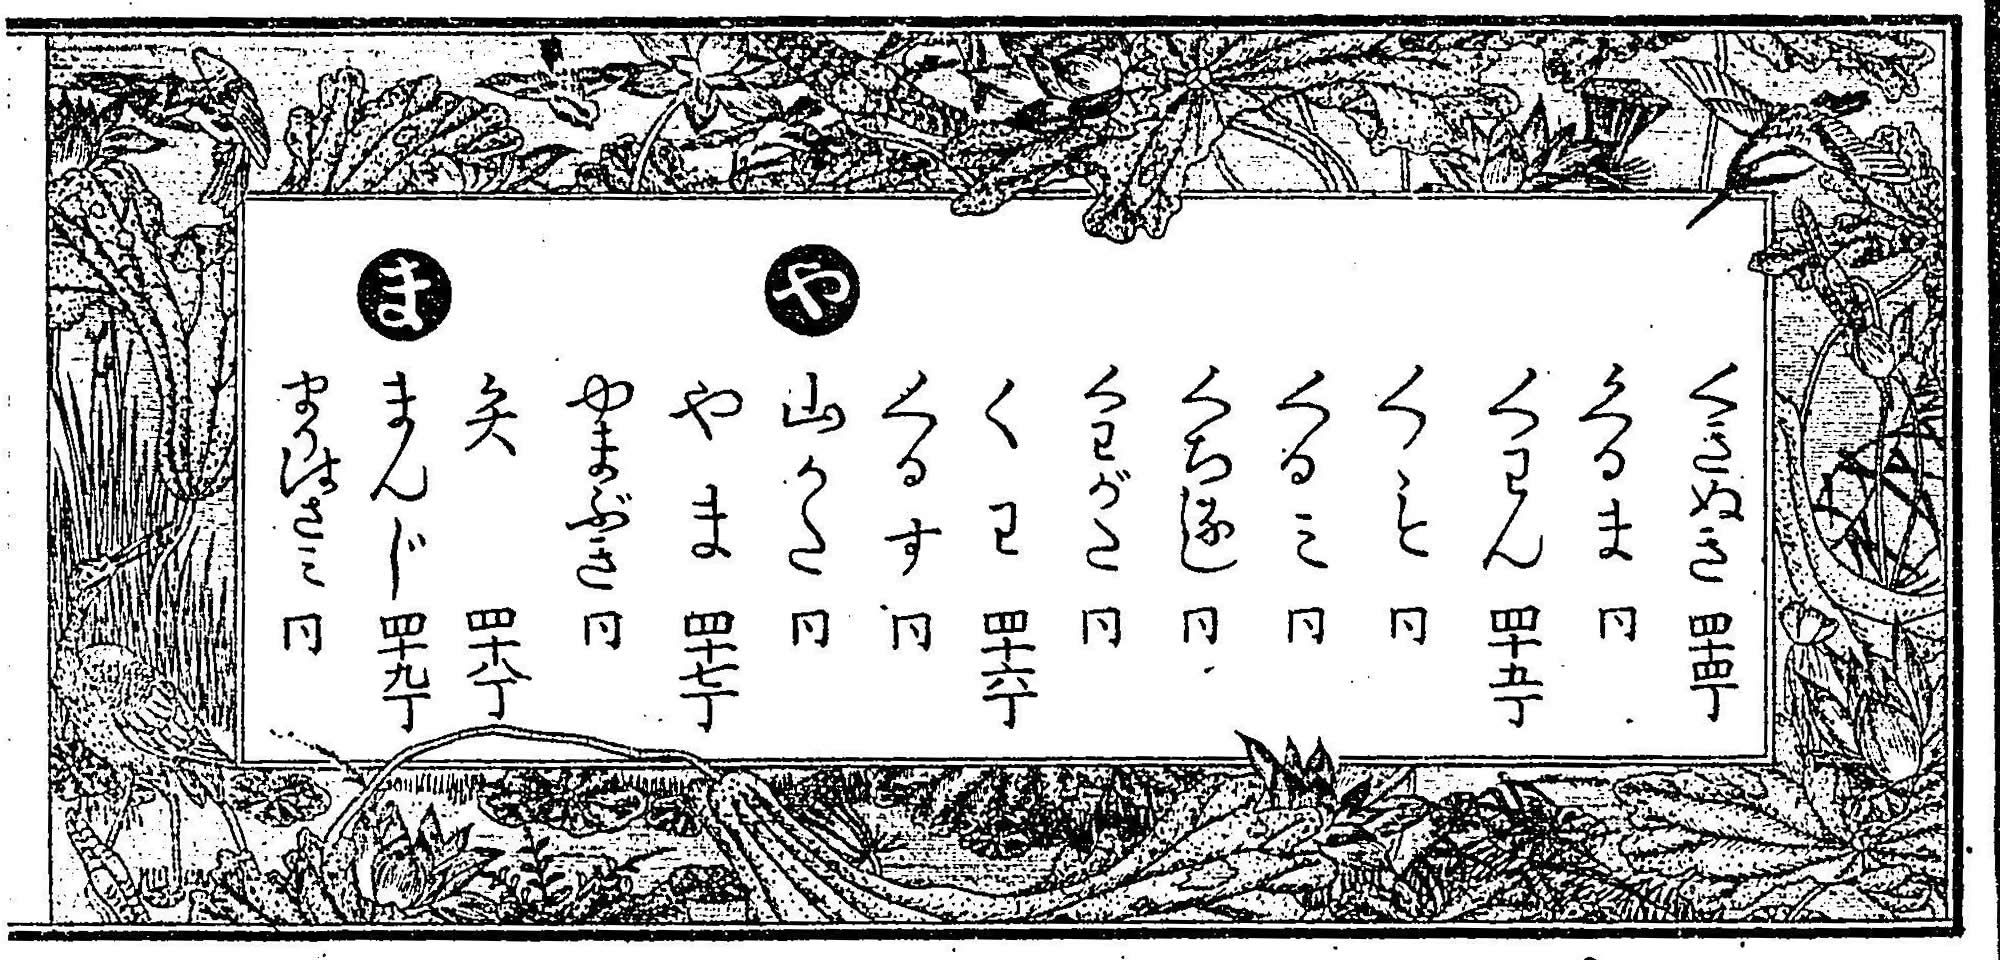 くぎぬき 四十四丁
くるま 同
くワん 四十五丁
同
くるミ 同
同
くワがた 同
くワ 四十六丁
くるす 同
や
山かた 同
やま 四十七丁
やまぶき 同
矢 四十八丁
ま
まんじ 四十九丁
まりはさミ 同